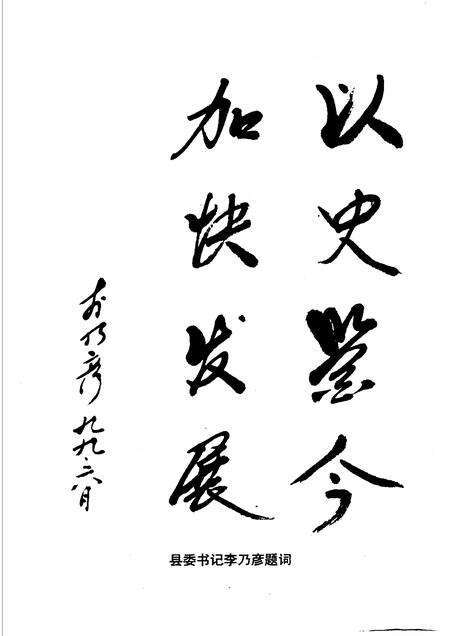 以史鉴今
加快发展
李乃彦 九九.六月
县委书记李乃彦题词